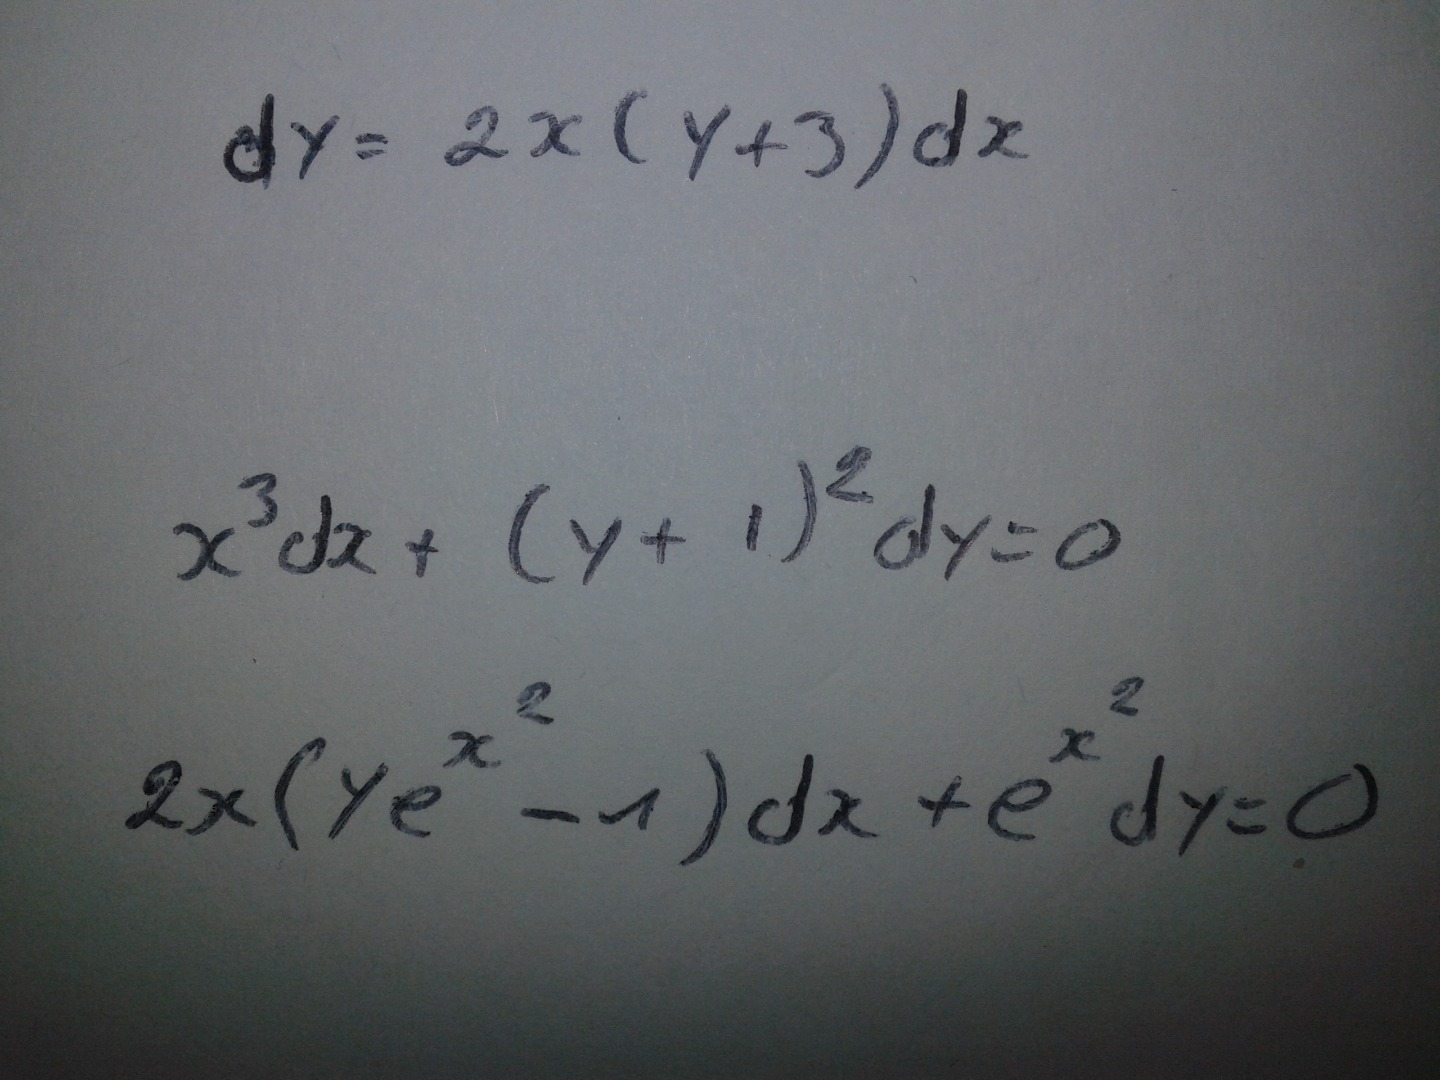 dy = 2x(y+3)dx
x³dx + (y+1)²dy=0
2x(ye^x² -1)dx + e^x² dy=0